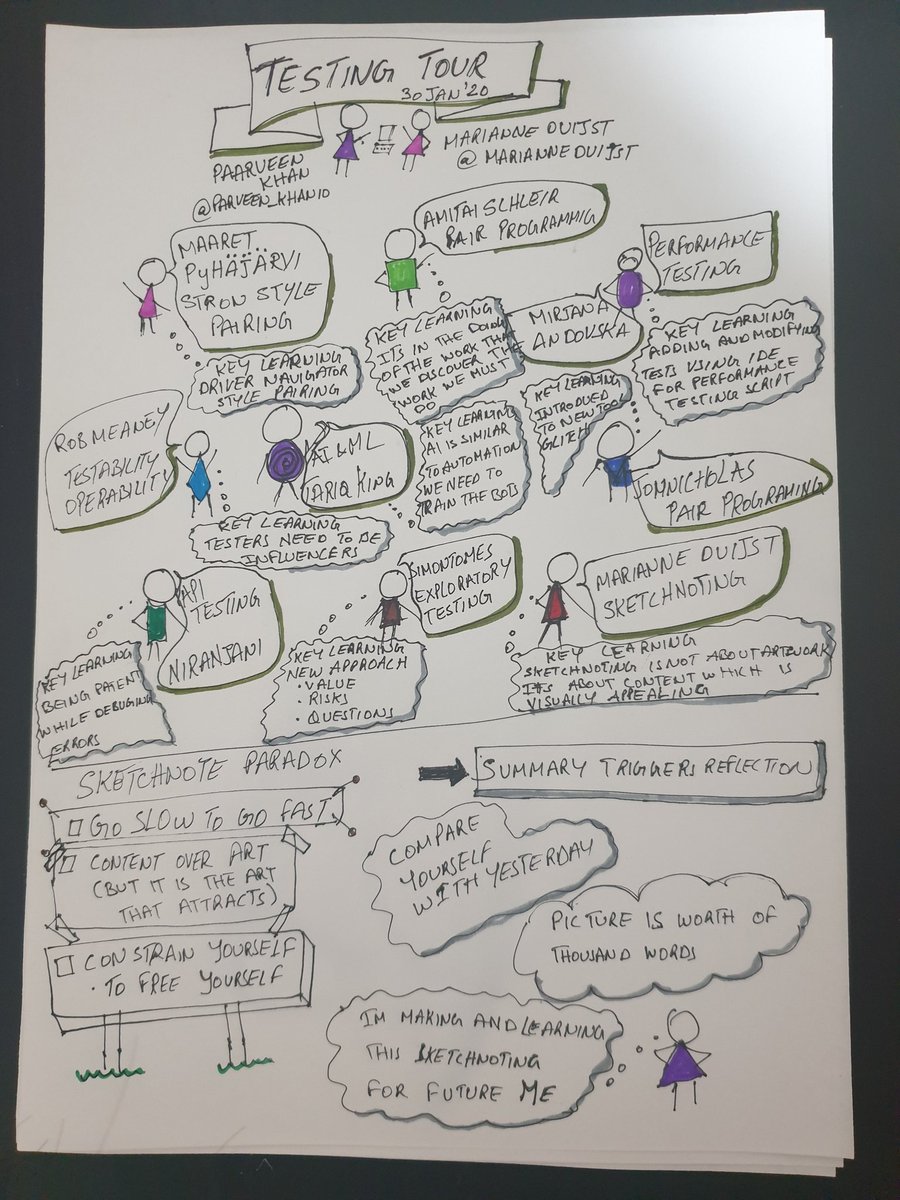 TESTING TOUR
30 JAN '20
PAARVEEN
KHAN
@PARVEEN_KHAN10
MARIANNE DUIJST
@ MARIANNEDUIJST
MAARET
PyHÄJÄRVI
STRON STYLE
PAIRING
KEY LEARNING
DRIVER NAVIGATOR
STYLE PAIRING
AMITAI SCHLEIR
PAIR PROGRAMMIG
KEY LEARNING
ITS IN THE DOING
OF THE WORK THAT
WE DISCOVER THE
WORK WE MUST
DO
PERFORMANCE
TESTING
MIRJANA
ANDOVSKA
KEY LEARNING
ADDING AND MODIFYING
TESTS USING IDE
FOR PERFORMANCE
TESTING SCRIPT
ROB MEANEY
TESTABILITY
OPERABILITY
KEY LEARNING
TESTERS NEED TO BE
INFLUENCERS
AI & ML
TARIQ KING
KEY LEARNING
AI IS SIMILAR
TO AUTOMATION
WE NEED TO
TRAIN THE BOTS
KEY LEARNING
INTRODUED
TO NEW TOOL
GLITCH
JOMNICHOLAS
PAIR PROGRAMING
API
TESTING
NIRANJANI
KEY LEARNING
BEING PATENT
WHILE DEBUGING
ERRORS
SIMONTOMES
EXPLORATORY
TESTING
KEY LEARNING
NEW APPROACH
• VALUE
• RISKS
• QUESTIONS
MARIANNE DUIJST
SKETCHNOTING
KEY LEARNING
SKETCHNOTING IS NOT ABOUT ARTWORK
ITS ABOUT CONTENT WHICH IS
VISUALLY APPEALING
SKETCHNOTE PARADOX
GO SLOW TO GO FAST
CONTENT OVER ART
(BUT IT IS THE ART
THAT ATTRACTS)
CONSTRAIN YOURSELF
• TO FREE YOURSELF
SUMMARY TRIGGERS REFLECTION
COMPARE
YOURSELF
WITH YESTERDAY
PICTURE IS WORTH OF
THOUSAND WORDS
IM MAKING AND LEARNING
THIS SKETCHNOTING
FOR FUTURE ME